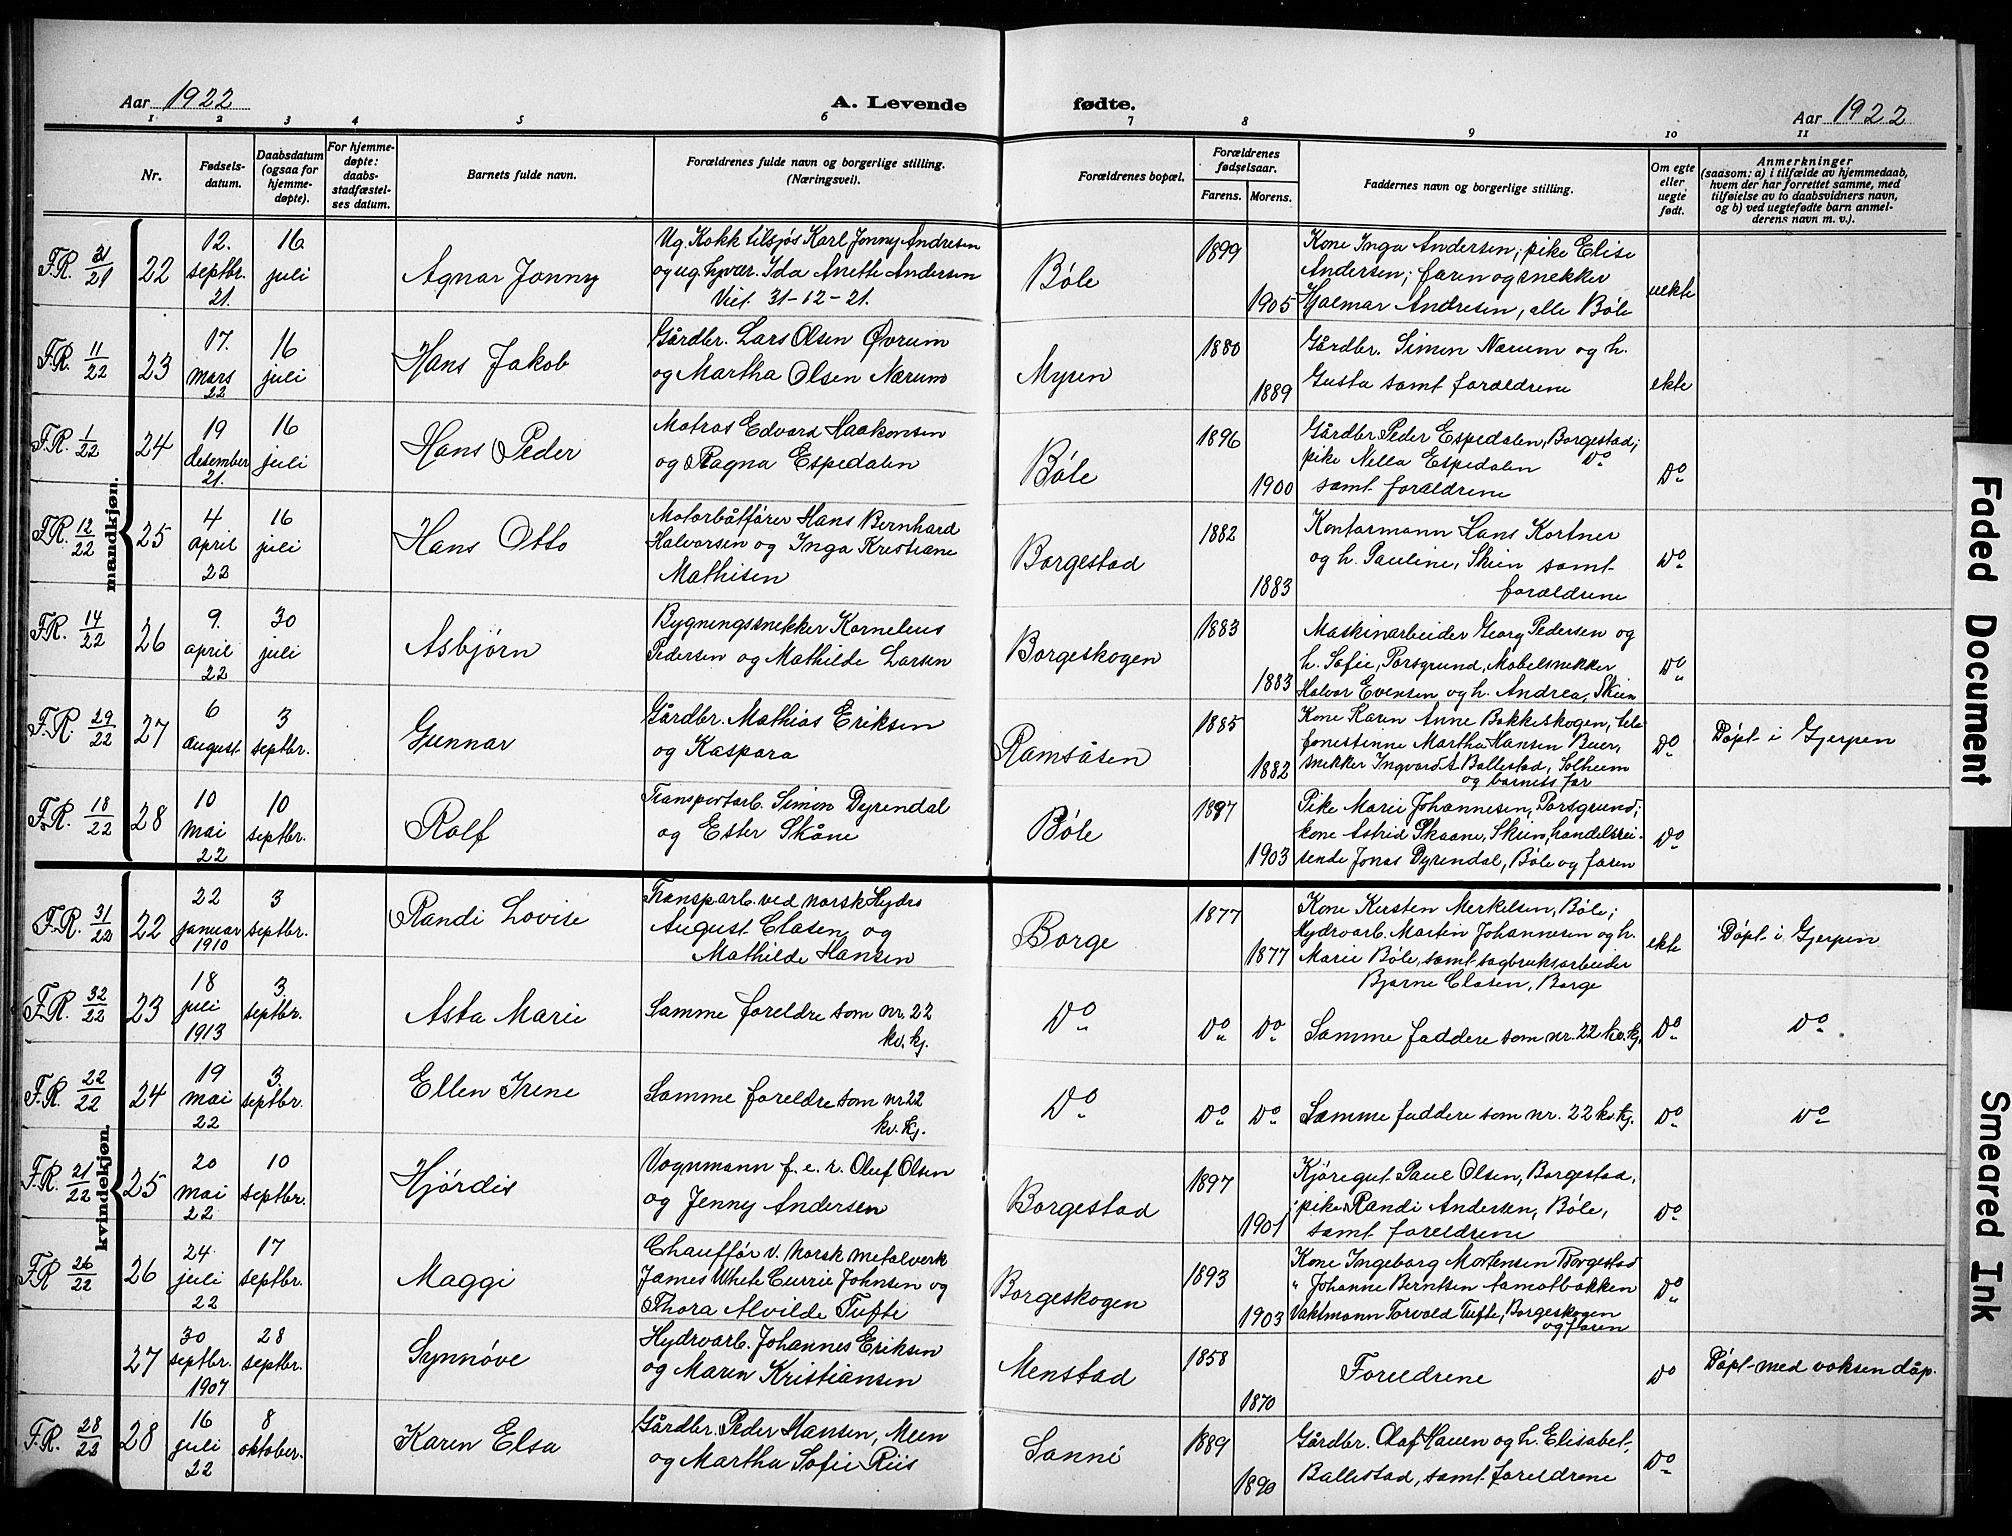 Aar 1922 A. Levende fødte. Aar 1922
1 2 3 4 5 6 7 8 9 10 11
Nr.
Fødselsdatum.
Daabsdatum (ogsaa for hjemmedøpte).
For hjemmedøpte: daabsstadfæstelses datum.
Barnets fulde navn.
Forældrenes fulde navn og borgerlige stilling. (Næringsvei).
Forældrenes bopæl.
Forældrenes fødselsaar.
Farens. Morens.
Faddernes navn og borgerlige stilling.
Om egte eller uegte født.
Anmerkninger
(saasom: a) i tilfælde av hjemmedaab, hvem der har forrettet samme, med tilføielse av to daabsvidners navn, og b) ved uegtefødte barn anmelderens navn m. v.).
mandkjøn.
F.R. 31/21 22 12. septbr. 21. 16 juli Agnar Jonny
Ug. Kokk tilsjøs Karl Jonny Andresen
og ug. hpvær. Ida Anette Andersen
Viet 31-12-21.
Bøle 1899 1905
Kone Inga Andersen; pike Elise
Andersen; faren og snekker
Hjalmar Andresen, alle Bøle
uekte
F.R. 11/22 23 17. mars 22 16 juli Hans Jakob
Gårdbr. Lars Olsen Øvrum
og Martha Olsen Nærum
Myren 1880 1889
Gårdbr. Simen Nærum og h.
Gusta samt forældrene
ekte
F.R. 1/22 24 19 desember 21. 16 juli Hans Peder
Matros Edvard Haakonsen
og Ragna Espedalen
Bøle 1896 1900
Gårdbr Peder Espedalen, Borgestad;
pike Nella Espedalen Do
samt forældrene
Do
F.R. 12/22 25 4 april 22 16 juli Hans Otto
Motorbåtfører Hans Bernhard
Halvorsen og Inga Kristiane
Mathisen
Borgestad 1882 1883
Kontormann Hans Kortner
og h. Pauline, Skien samt
forældrene
Do
F.R. 14/22 26 9. april 22 30 juli Asbjørn
Bygningssnekker Kornelius
Pedersen og Mathilde Larsen
Borgeskogen 1883 1883
Maskinarbeider Georg Pedersen og
h. Sofie, Porsgrund, Møbelsnekker
Halvor Evensen og h. Andrea, Skien
Do
F.R. 29/22 27 6 august 3 septbr. Gunnar
Gårdbr. Mathias Eriksen
og Kaspara
Ramsåsen 1885 1882
Kone Karen Anne Bakkeskogen, tele
fonistinne Martha Hansen Buer,
snekker Ingvard A. Ballestad, Solheim
og barnets far
Do Døpt i Gjerpen
F.R. 18/22 28 10 mai 22 10 septbr. Rolf
Transportarb. Simon Dyrendal
og Ester Skåne
Bøle 1897 1903
Pike Marie Johannesen, Porsgrund;
kone Astrid Skaane, Skien, handelsrei-
sende Jonas Dyrendal, Bøle og faren
Do
kvindekjøn.
F.R. 31/22 22 22 januar 1910 3 septbr. Randi Lovise
Transparb. ved norsk Hydro
August Clasen og
Mathilde Hansen
Borge 1877 1877
Kone Kirsten Merkelsen, Bøle;
Hydroarb. Martin Johannesen og h.
Marie Bøle, samt sagbruksarbeider
Bjarne Clasen, Borge
ekte Døpt i Gjerpen
F.R. 32/22 23 18 juli 1913 3 septbr. Asta Marie
Samme foreldre som nr. 22
kv. kj.
Do Do Do Samme faddere som nr. 22 kv. kj. Do Do
F.R. 22/22 24 19 mai 22 3 septbr. Ellen Irene
Samme foreldre som nr 22
kv. kj.
Do Do Do Samme faddere som nr. 22 kv. kj. Do Do
F.R. 21/22 25 20 mai 22 10 septbr. Hjørdis
Vognmann f. e. r. Oluf Olsen
og Jenny Andersen
Borgestad 1897 1901
Kjøregut Paul Olsen, Borgestad,
pike Randi Andersen, Bøle,
samt foreldrene
Do
F.R 26/22 26 24 juli 22 17 septbr. Maggi
Chauffør v. norsk metalverk
James White Currie Johnsen og
Thora Alvilde Tufte
Borgeskogen 1893 1903
Kone Ingeborg Mortensen Borgestad
" Johanne Berntsen
Vaktmann Torvald Tufte, Borgeskogen
og faren
Do
27 30 septbr. 1907 28 septbr. Synnøve
Hydroarb. Johannes Eriksen
og Maren Kristiansen
Menstad 1858 1870
Foreldrene
Do Døpt med voksen dåp.
F.R. 28/22 28 16 juli 22 8 oktober. Karen Elsa
Gårdbr. Peder Hansen, Meen
og Martha Sofie Riis
Sanni 1889 1890
Gårdbr. Olaf Hauen og h. Elisabet,
Ballestad, samt foreldrene
Do
Faded Document
Smeared Ink